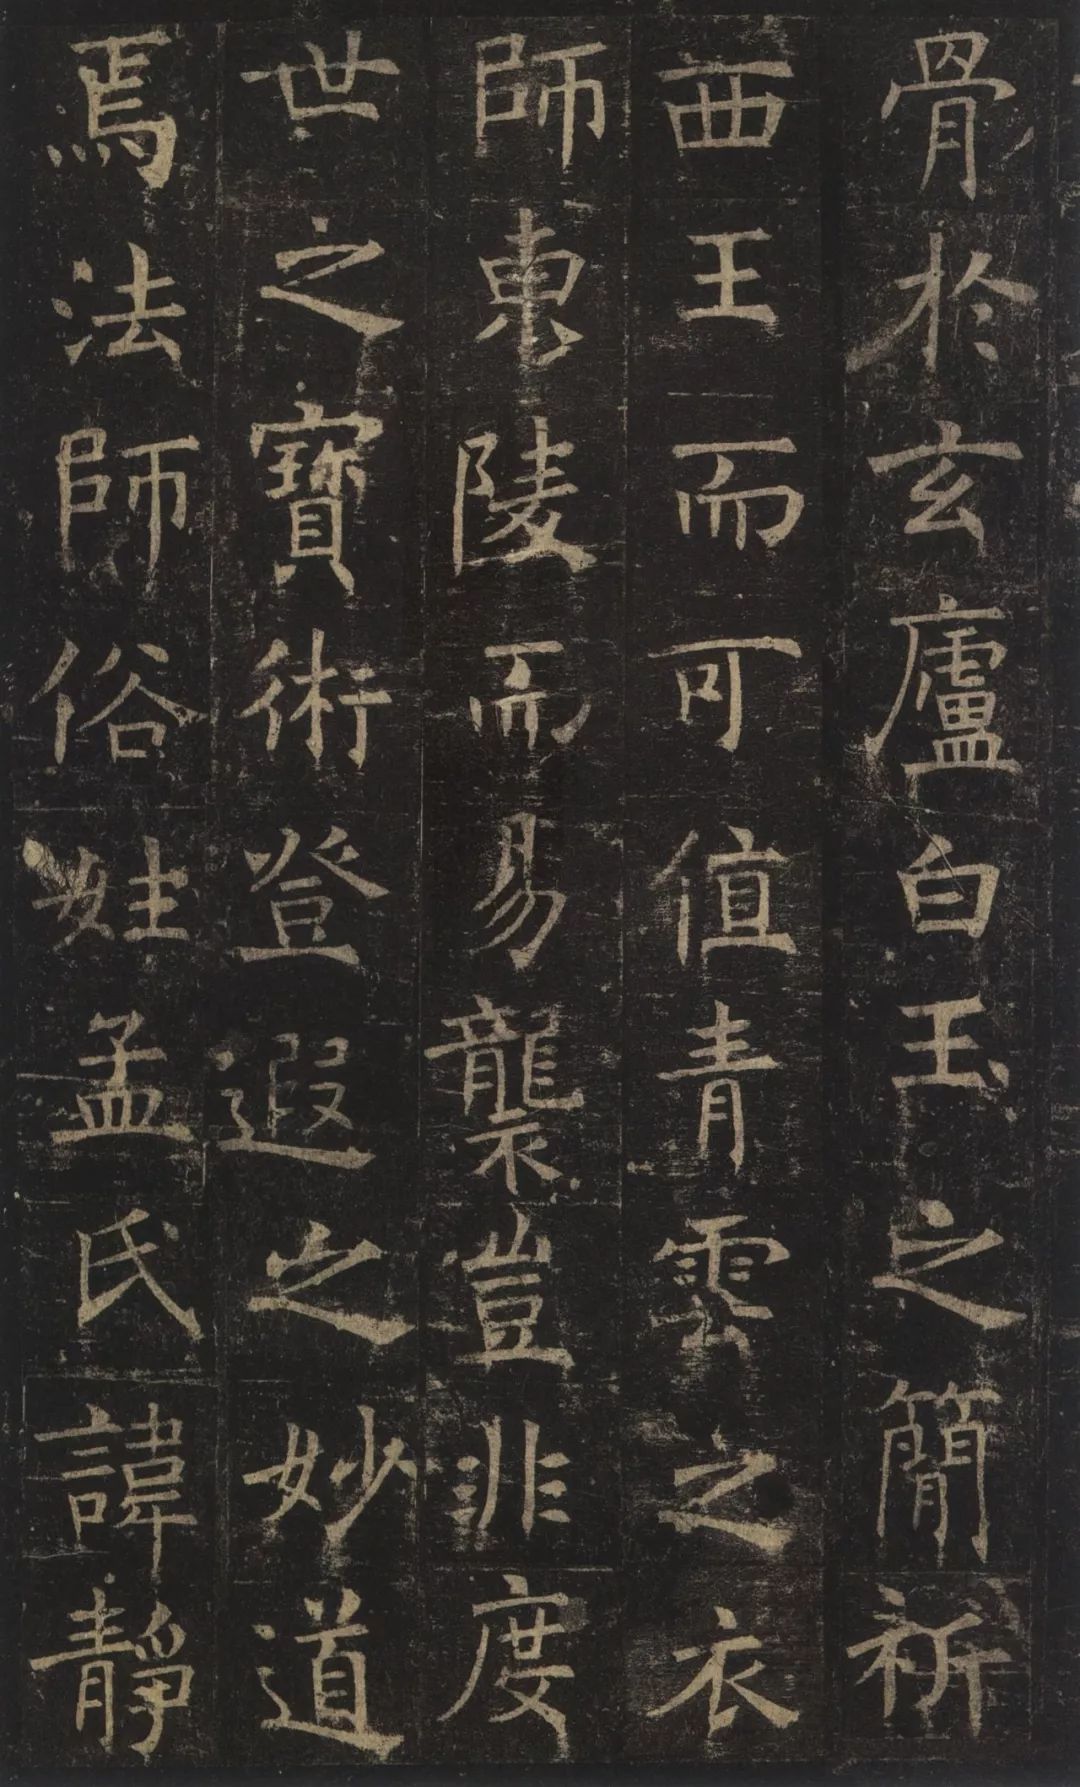 骨於玄廬白玉之簡祈
西王而可值青雲之衣
師東陵而易襲豈非度
世之寶術登遐之妙道
焉法師俗姓孟氏諱靜